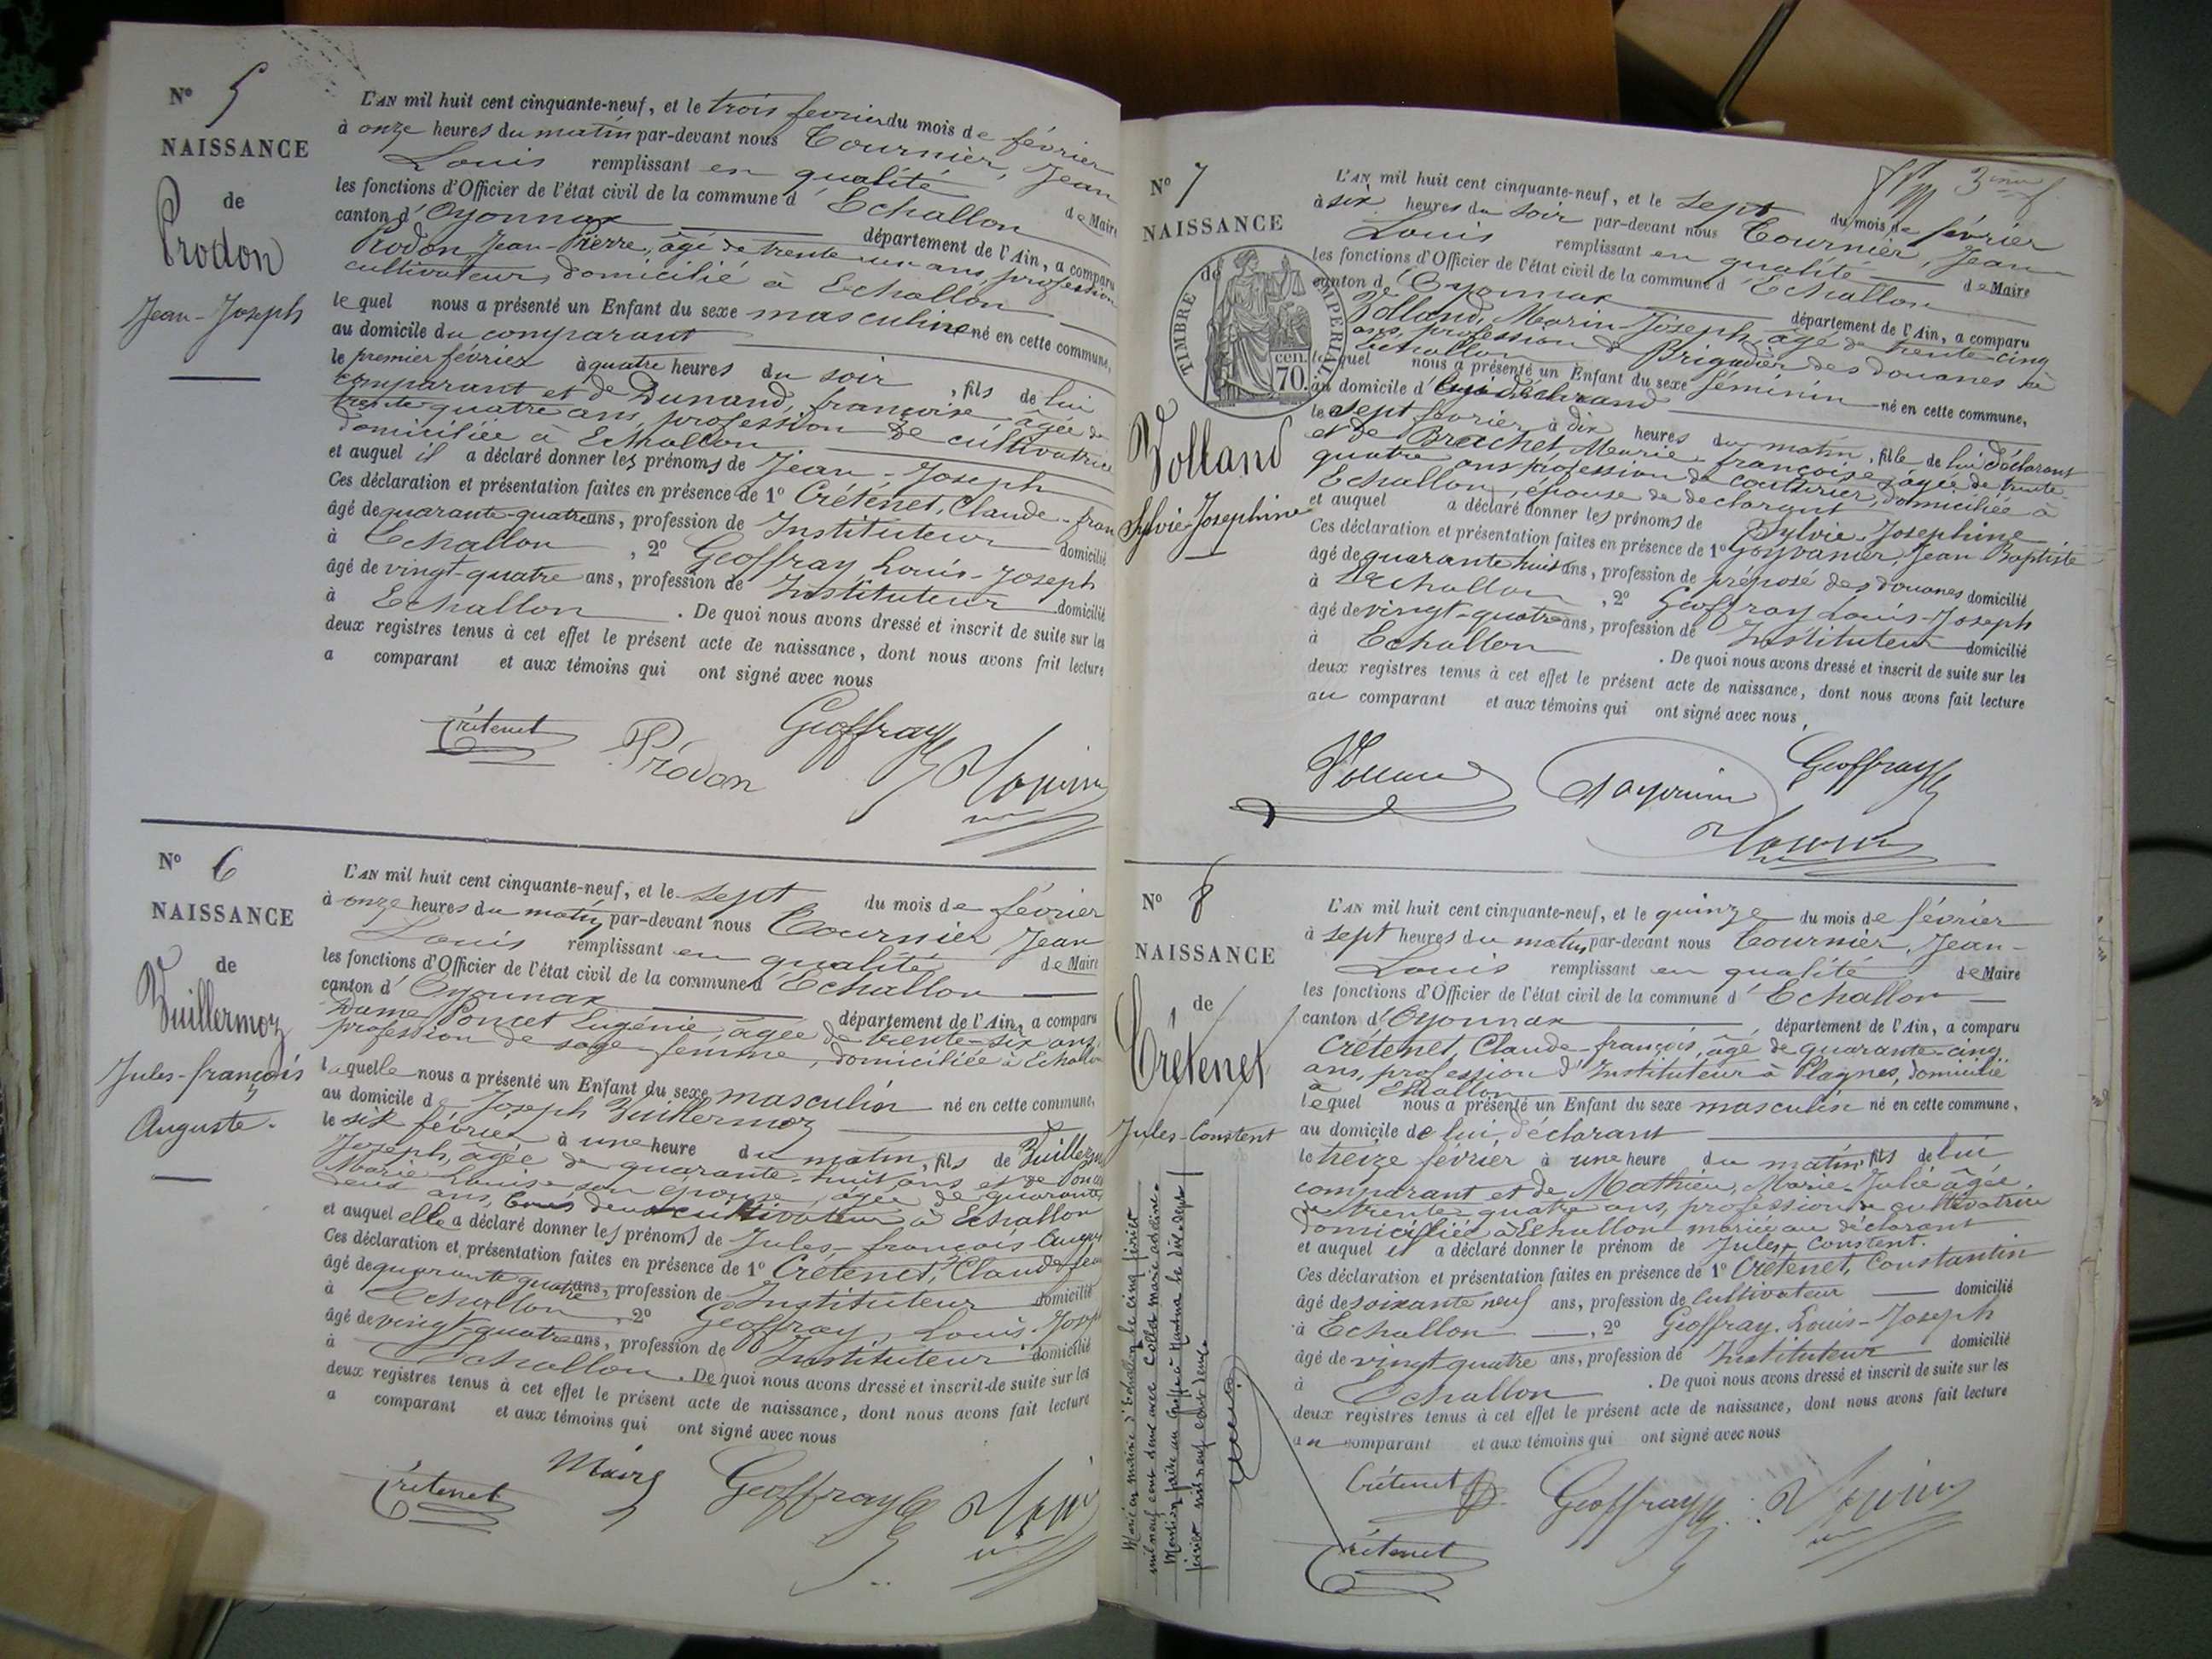 N° 5
NAISSANCE
de
Prodon
Jean-Joseph
L'AN mil huit cent cinquante-neuf, et le trois fevrier du mois de février
à onze heures du matin par-devant nous Tournier, Jean
Louis remplissant en qualité de Maire
les fonctions d'Officier de l'état civil de la commune d'Echallon
canton d'Oyonnax département de l'Ain, a comparu
Prodon, Jean-Pierre, âgé de trente un ans, profession
cultivateur, domicilié à Echallon
le quel nous a présenté un Enfant du sexe masculin né en cette commune,
au domicile du comparant
le premier février à quatre heures du soir, fils de lui
comparant et de Dunand, françoise âgée de
trente quatre ans, profession de cultivatrice
domiciliée à Echallon
et auquel il a déclaré donner les prénoms de Jean-Joseph
Ces déclaration et présentation faites en présence de 1° Crétenet, Claude-fran
âgé de quarante-quatre ans, profession de Instituteur domicilié
à Echallon, 2° Geoffray Louis-Joseph
âgé de vingt-quatre ans, profession de Instituteur domicilié
à Echallon. De quoi nous avons dressé et inscrit de suite sur les
deux registres tenus à cet effet le présent acte de naissance, dont nous avons fait lecture
a comparant et aux témoins qui ont signé avec nous
Crétenet Prodon Geoffray
N° 6
NAISSANCE
de
Vuillermoz
Jules-françois
Auguste.
L'AN mil huit cent cinquante-neuf, et le sept du mois de février
à onze heures du matin par-devant nous Tournier Jean
Louis remplissant en qualité de Maire
les fonctions d'Officier de l'état civil de la commune d'Echallon
canton d'Oyonnax département de l'Ain, a comparu
Dame Poncet Eugénie, âgée de trente-six ans,
profession de sage-femme, domiciliée à Echallon
laquelle nous a présenté un Enfant du sexe masculin né en cette commune,
au domicile de Joseph Vuillermoz
le six février à une heure du matin, fils de Vuillermoz
Joseph, âgée de quarante-huit ans et de Poncet
Marie Louise son épouse, âgée de quarante
deux ans, tous deux cultivateur à Echallon
et auquel elle a déclaré donner les prénoms de Jules-françois Auguste
Ces déclaration et présentation faites en présence de 1° Crétenet, Claude fran
âgé de quarante quatre ans, profession de Instituteur domicilié
à Echallon, 2° Geoffray, Louis-Joseph
âgé de vingt-quatre ans, profession de Instituteur domicilié
à Echallon. De quoi nous avons dressé et inscrit de suite sur les
deux registres tenus à cet effet le présent acte de naissance, dont nous avons fait lecture
a comparant et aux témoins qui ont signé avec nous
Crétenet Geoffray
3ème
N° 7
NAISSANCE
de
TIMBRE IMPERIAL
70 cen.
Volland
Sylvie-Josephine
L'AN mil huit cent cinquante-neuf, et le sept du mois de février
à six heures du soir par-devant nous Tournier, Jean
Louis remplissant en qualité de Maire
les fonctions d'Officier de l'état civil de la commune d'Echallon
canton d'Oyonnax département de l'Ain, a comparu
Volland, Marin Joseph, âgé de trente-cinq
ans, profession de Brigadier des douanes à
Echallon
lequel nous a présenté un Enfant du sexe féminin né en cette commune,
au domicile de lui déclarant
le sept février à dix heures du matin, fille de lui déclarant
et de Brachet Marie françoise, âgée de trente
quatre ans profession de couturier, domiciliée à
Echallon, épouse de declarant
et auquel a déclaré donner les prénoms de Sylvie-Josephine
Ces déclaration et présentation faites en présence de 1° Jean Baptiste
âgé de quarante huit ans, profession de préposé des douanes domicilié
à Echallon, 2° Geoffray Louis-Joseph
âgé de vingt-quatre ans, profession de Instituteur domicilié
à Echallon. De quoi nous avons dressé et inscrit de suite sur les
deux registres tenus à cet effet le présent acte de naissance, dont nous avons fait lecture
au comparant et aux témoins qui ont signé avec nous,
Volland Geoffray
N° 8
NAISSANCE
de
Crétenet
Jules-Constent
L'AN mil huit cent cinquante-neuf, et le quinze du mois de février
à sept heures du matin par-devant nous Tournier, Jean-
Louis remplissant en qualité de Maire
les fonctions d'Officier de l'état civil de la commune d'Echallon
canton d'Oyonnax département de l'Ain, a comparu
Crétenet, Claude-françois, âgé de quarante-cinq
ans, profession d'Instituteur à Plagnes, domicilié
à Echallon
lequel nous a présenté un Enfant du sexe masculin né en cette commune,
au domicile de lui, déclarant
le treize février à une heure du matin fils de lui
comparant et de Mathieu, Marie-Julie âgée
de trente-quatre ans, profession de cultivatrice
domiciliée à Echallon mariée au déclarant
et auquel il a déclaré donner le prénom de Jules-Constent.
Ces déclaration et présentation faites en présence de 1° Crétenet, Constantin
âgé de soixante neuf ans, profession de Cultivateur domicilié
à Echallon, 2° Geoffray. Louis-Joseph
âgé de vingt quatre ans, profession de Instituteur domicilié
à Echallon. De quoi nous avons dressé et inscrit de suite sur les
deux registres tenus à cet effet le présent acte de naissance, dont nous avons fait lecture
au comparant et aux témoins qui ont signé avec nous
Crétenet Geoffray
Crétenet
Marié en mairie d'Echallon le cinq février
mil neuf cent deux avec Collet marie
Mention faite au Greffe à Nantua le dix-sept
février mil neuf cent deux.